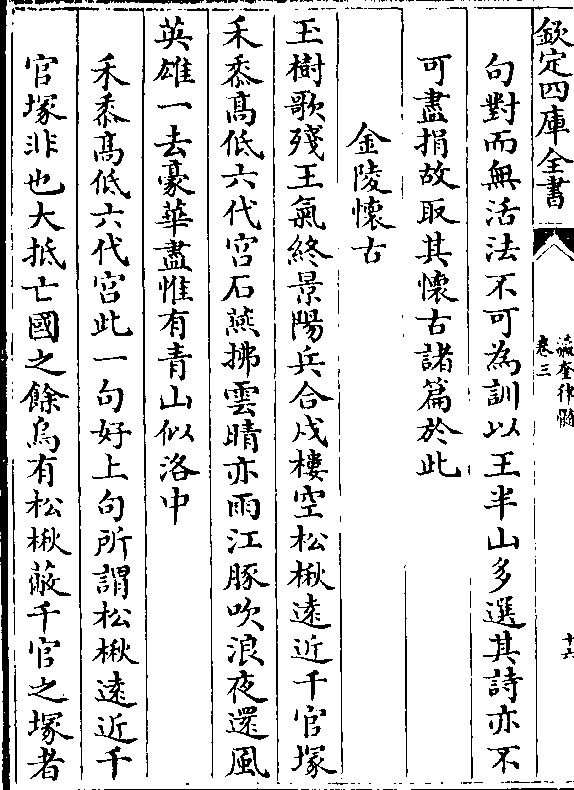 欽定四庫全書
瀛奎律髓
卷三
十六
句對而無活法不可為訓以王半山多選其詩亦不
可盡捐故取其懷古諸篇於此
金陵懷古
玉樹歌殘王氣終景陽兵合戍樓空松楸遠近千官塚
禾黍高低六代宮石燕拂雲晴亦雨江豚吹浪夜還風
英雄一去豪華盡惟有青山似洛中
禾黍高低六代宮此一句好上句所謂松楸遠近千
官塚非也大抵亡國之餘烏有松楸蔽千官之塚者